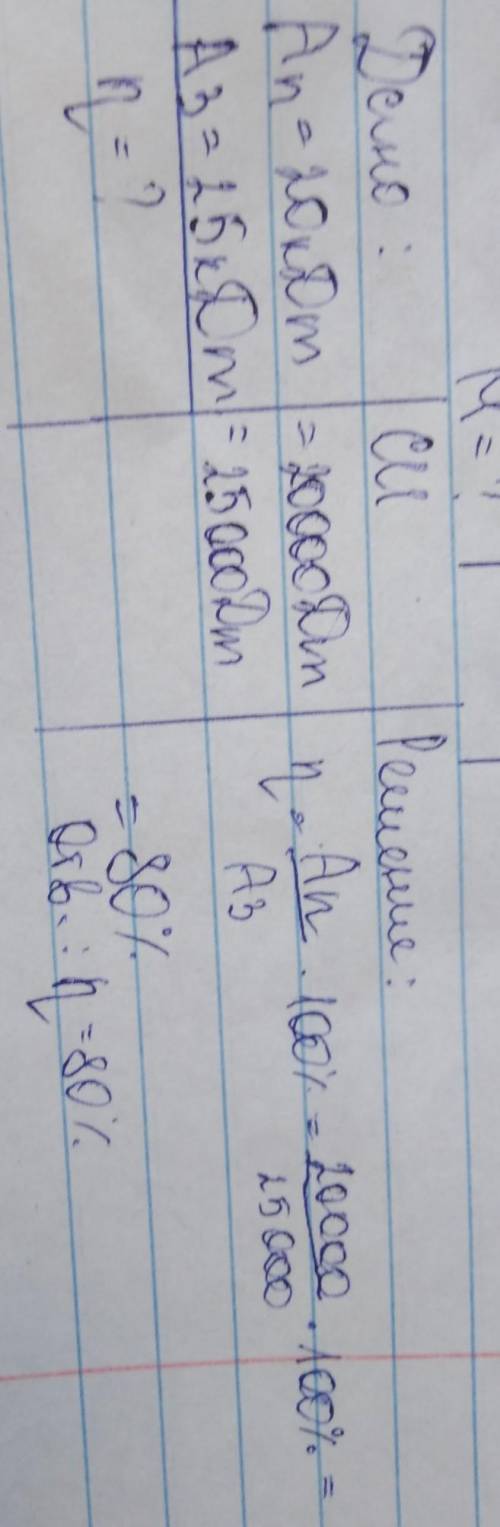 η = ?
Дано:
Ап = 20кДж
Аз = 25кДж
η = ?
СИ
= 20000Дж
= 25000Дж
Решение:
η = Ап/Аз · 100% = 20000/25000 · 100% =
= 80%
Отв.: η = 80%